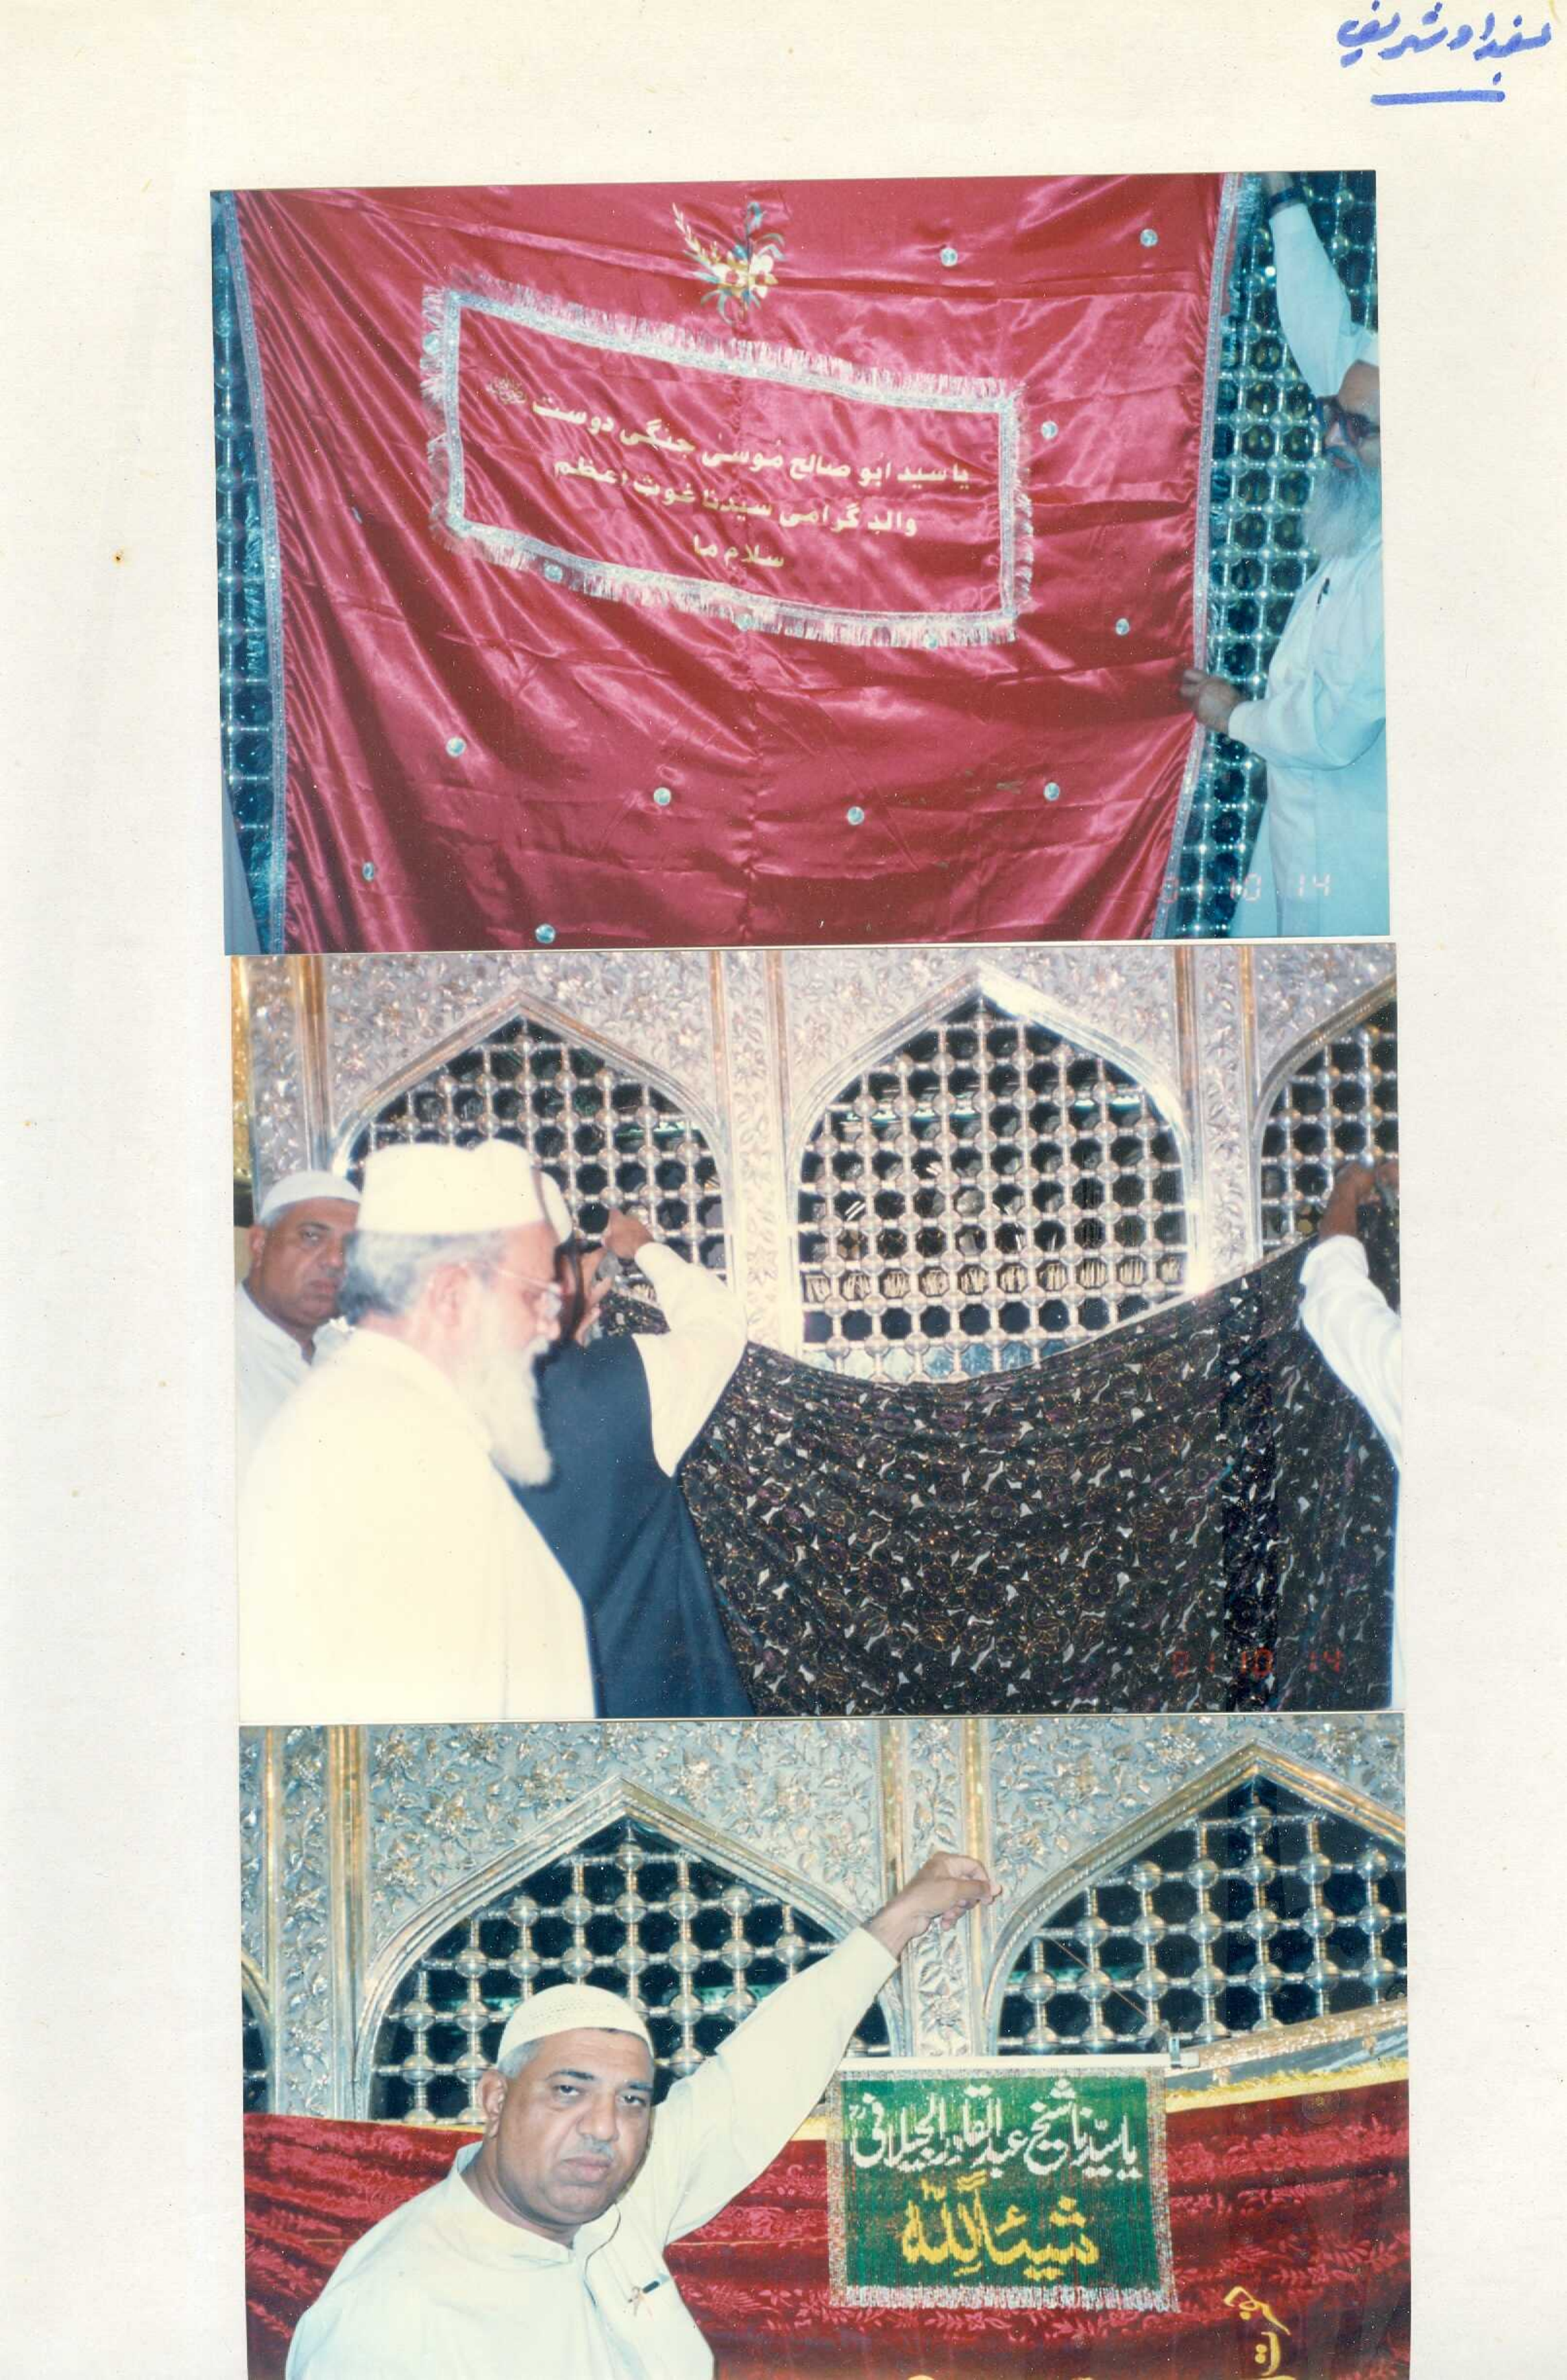 بغداد شریف
یا سید ابو صالح موسیٰ جنگی دوست
والد گرامی سیدنا غوث اعظم
سلام ما
01 10 14
01 10 14
یا سیّدنا شیخ عبد القادر الجیلانی
شیئاً للہ